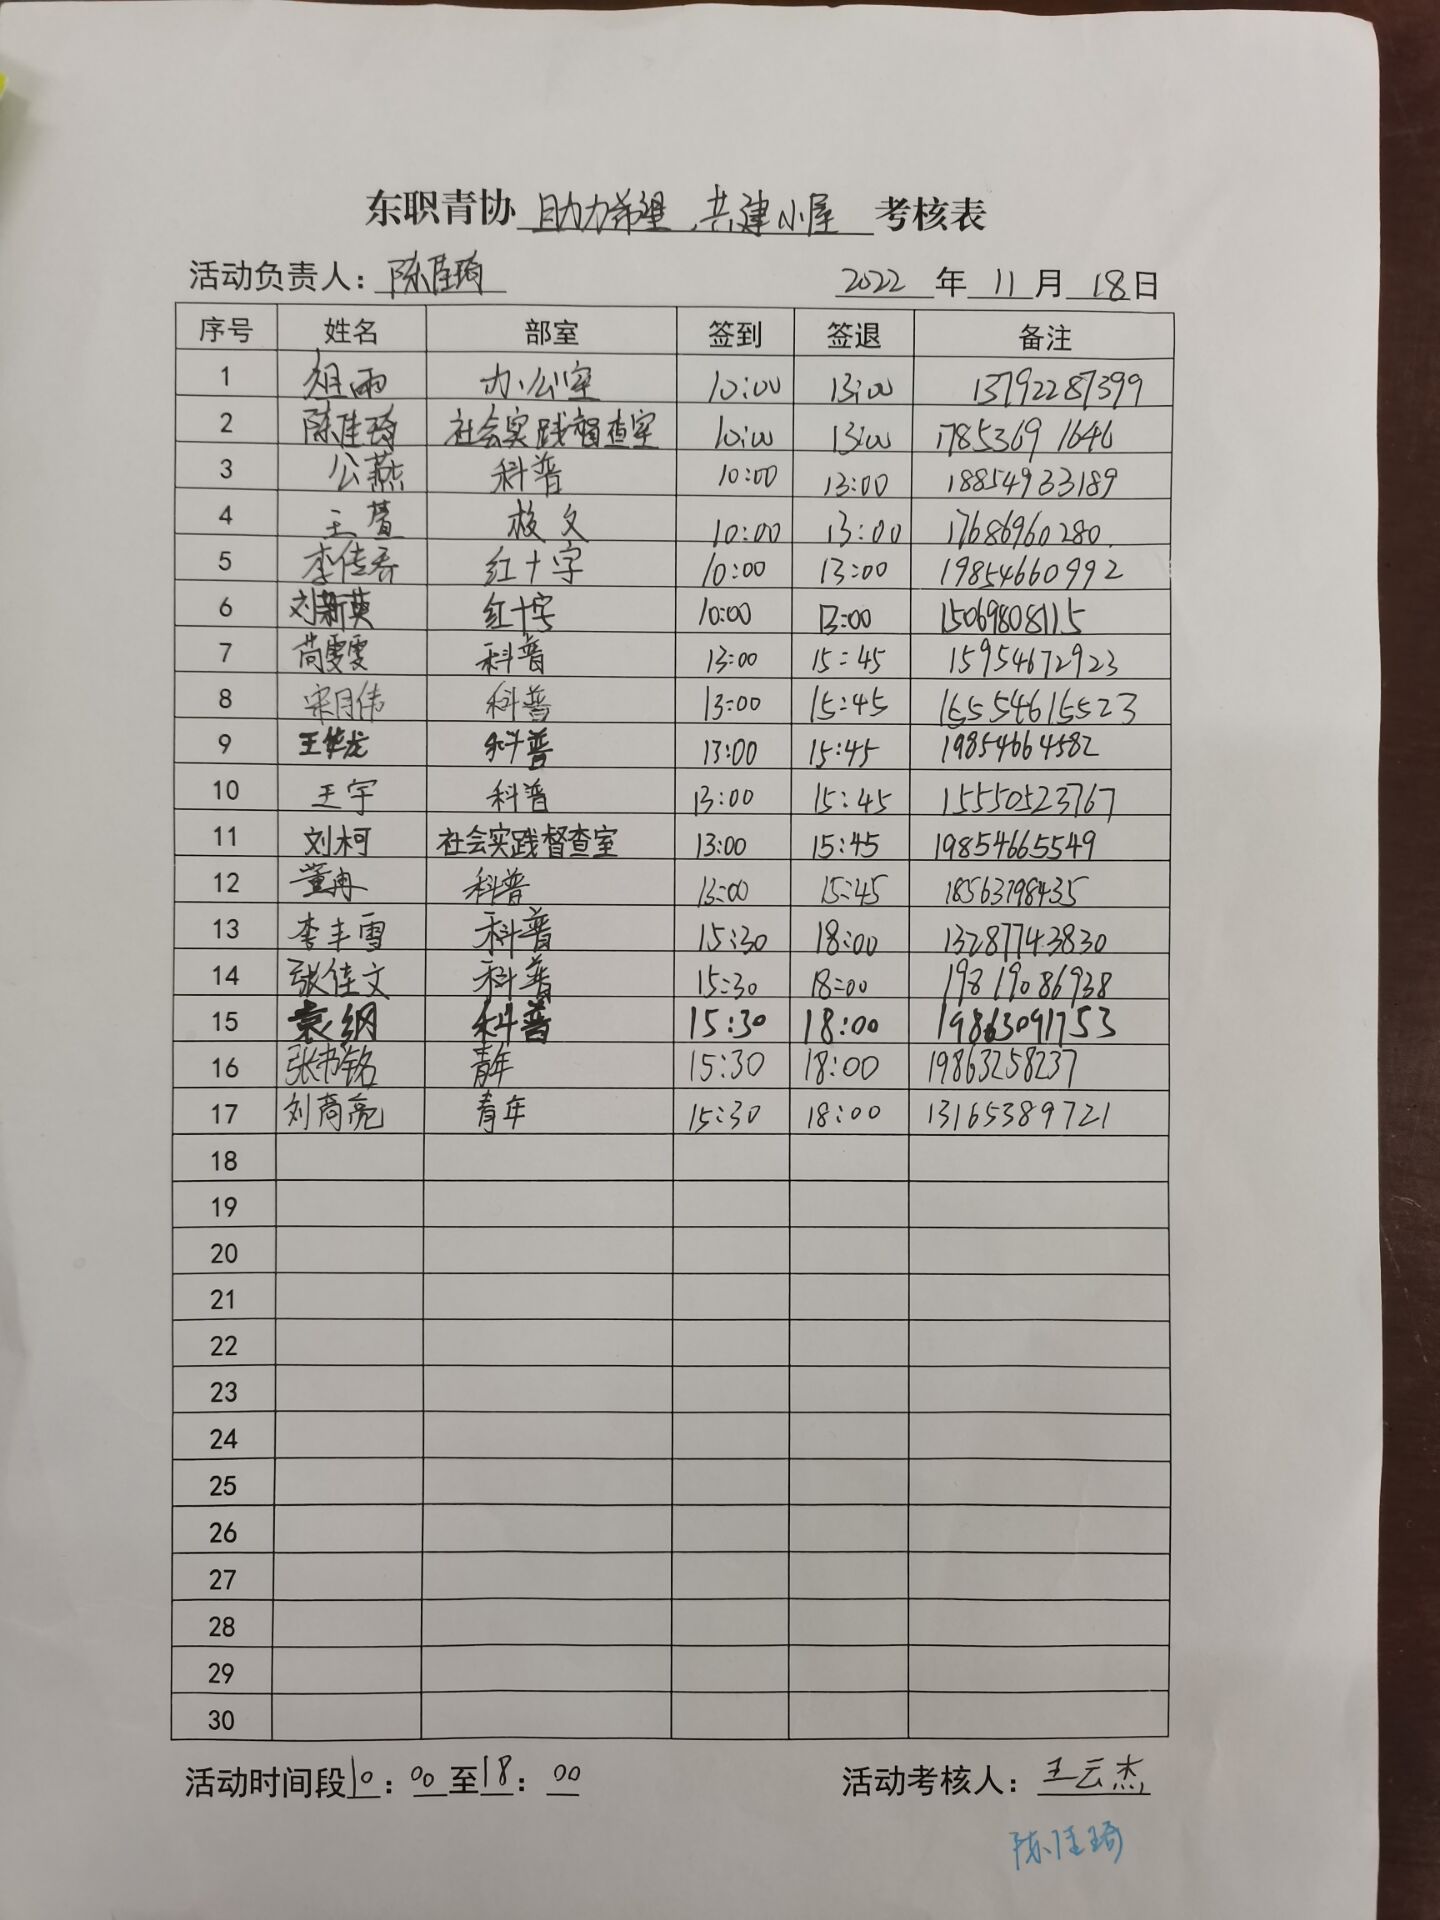 东职青协 助力希望,共建小屋 考核表
活动负责人：陈佳琦 2022 年 11 月 18 日
序号 姓名 部室 签到 签退 备注
1 祖雨 办公室 10:00 13:00 13792287399
2 陈佳琦 社会实践督查室 10:00 13:00 17853691646
3 公燕 科普 10:00 13:00 18854933189
4 王萱 校文 10:00 13:00 17686960280.
5 李佳 红十字 10:00 13:00 19854660992
6 刘新英 红十字 10:00 13:00 15069808115
7 苘雯雯 科普 13:00 15:45 15954672923
8 宋月伟 科普 13:00 15:45 15554615523
9 王华龙 科普 13:00 15:45 19854664582
10 王宇 科普 13:00 15:45 15550523767
11 刘柯 社会实践督查室 13:00 15:45 19854665549
12 董冉 科普 13:00 15:45 18563798435
13 李丰雪 科普 15:30 18:00 13287743830
14 张佳文 科普 15:30 18:00 19819086938
15 袁纲 科普 15:30 18:00 19863091753
16 张书铭 青年 15:30 18:00 19863258237
17 刘商亮 青年 15:30 18:00 13165389721
18
19
20
21
22
23
24
25
26
27
28
29
30
活动时间段10：00至18：00 活动考核人：王云杰
陈佳琦